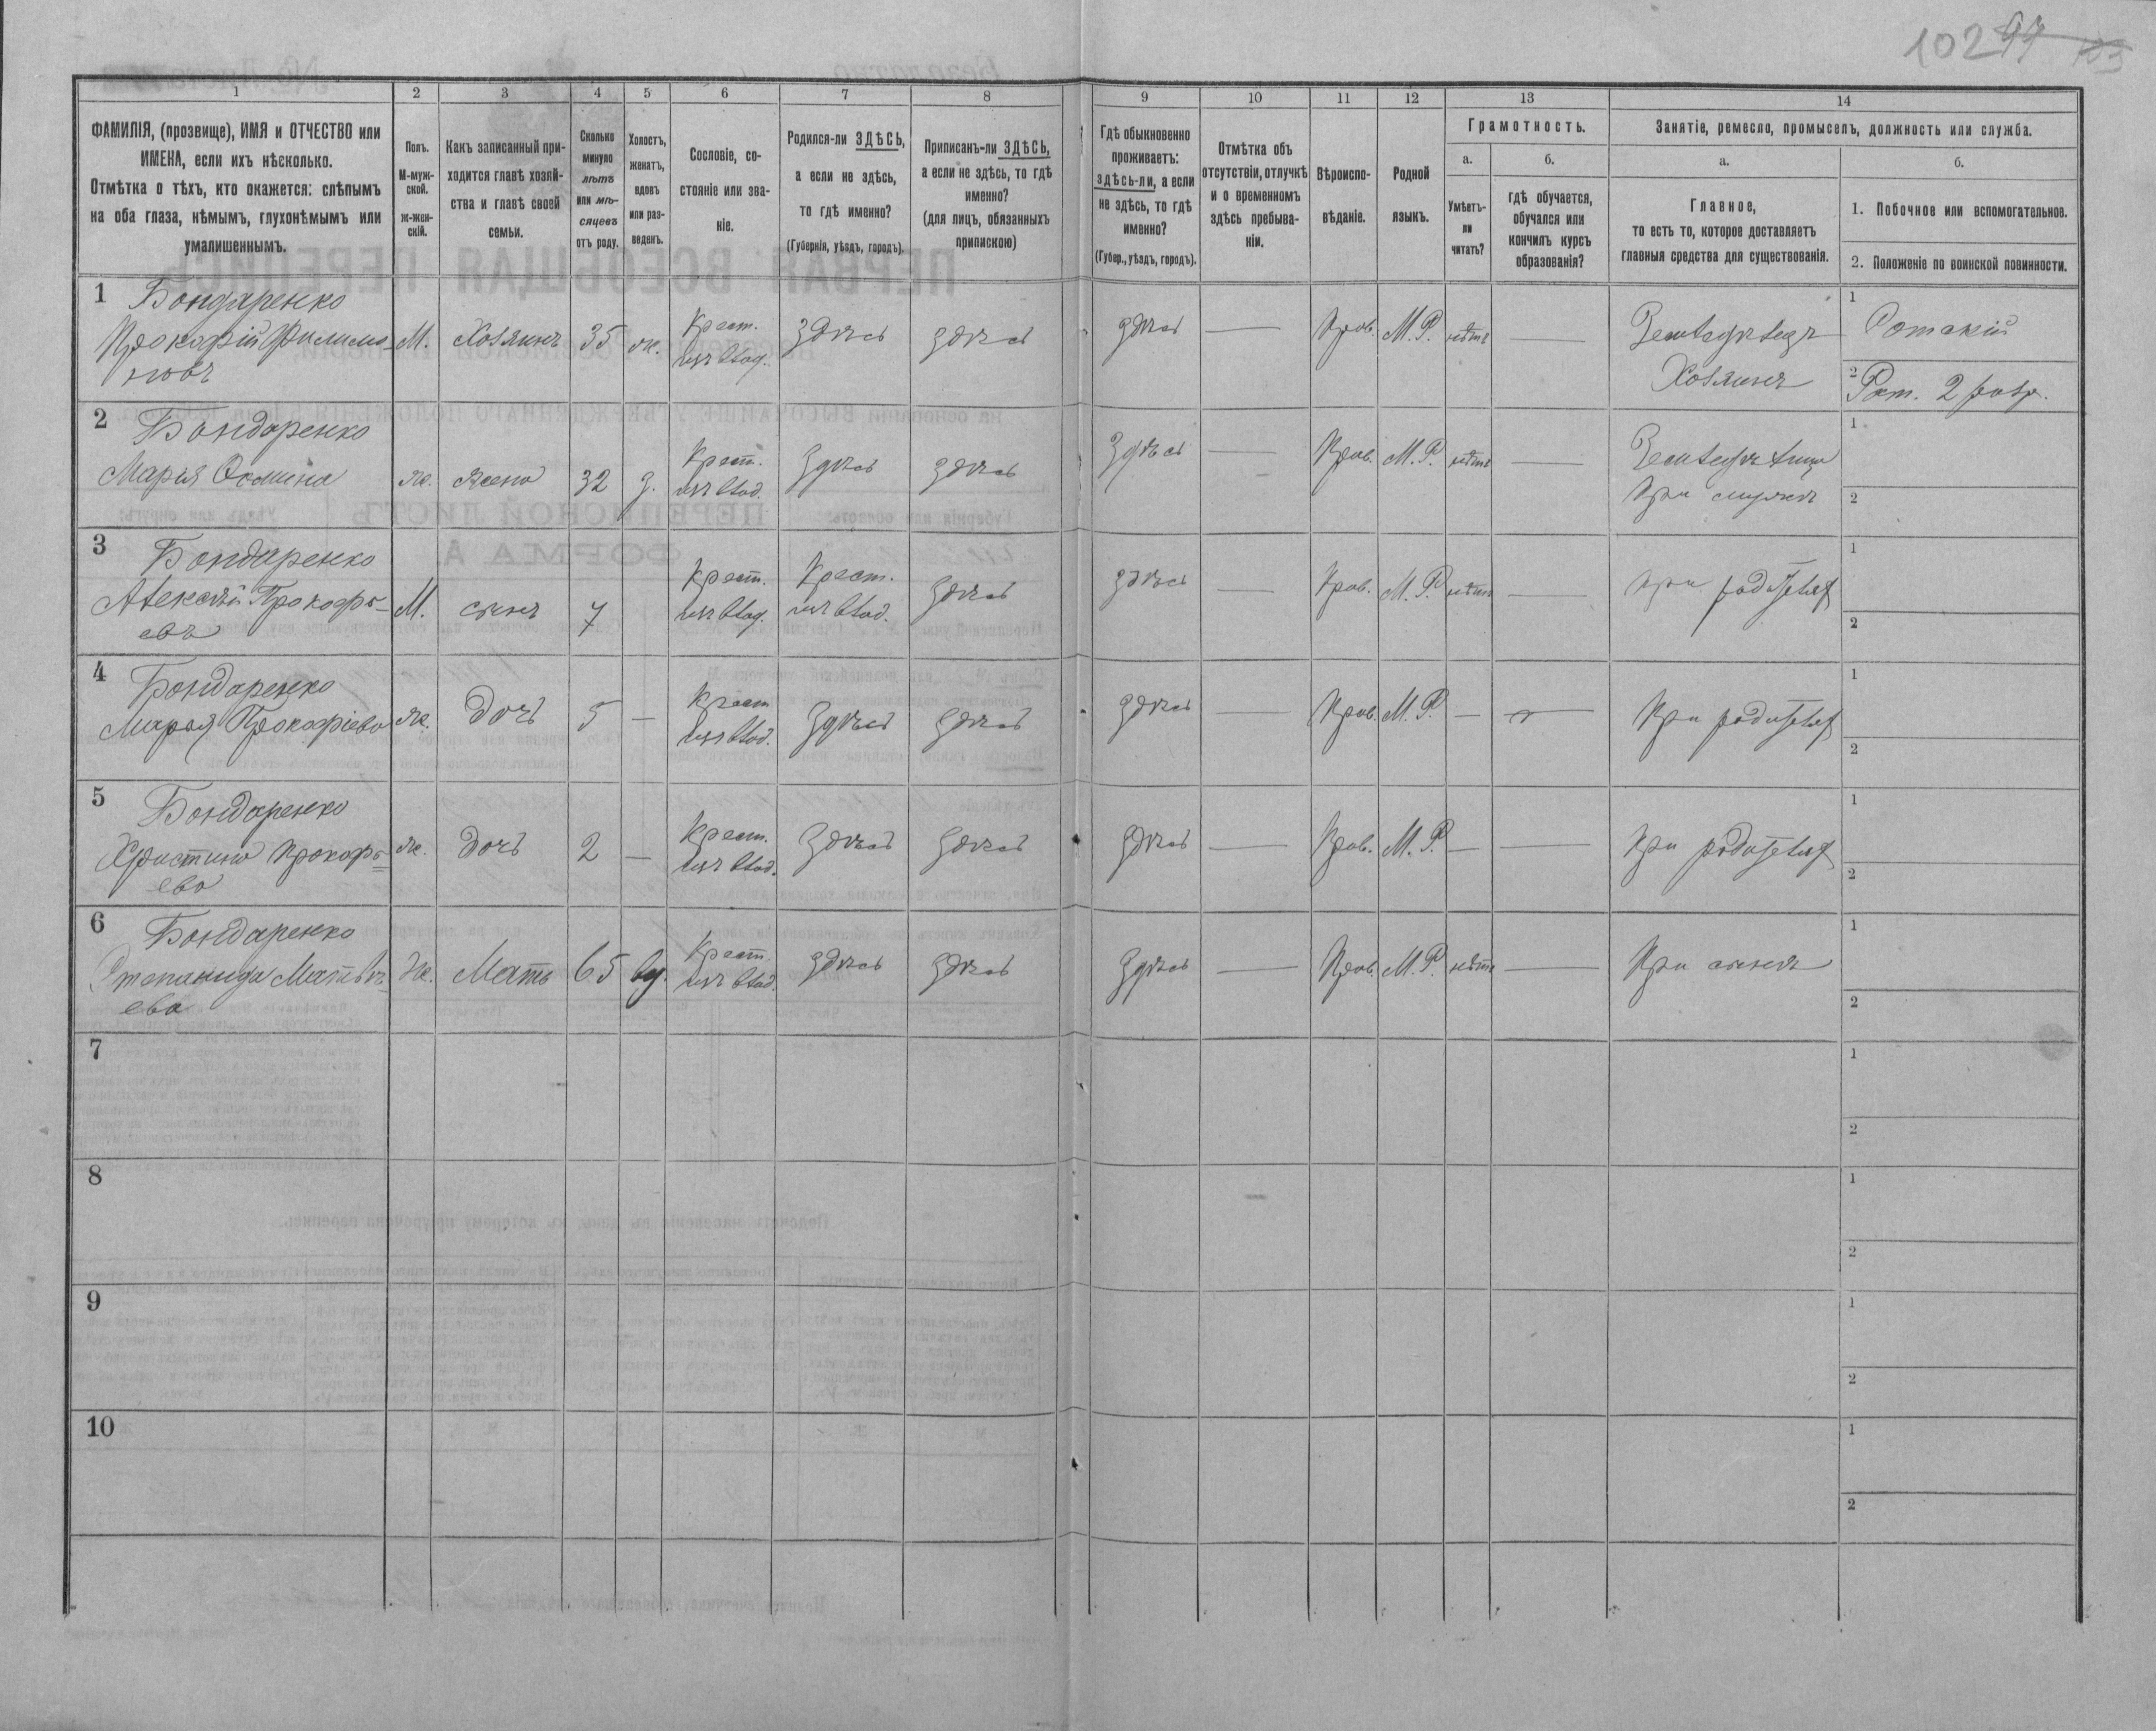 102 97 103
1 2 3 4 5 6 7 8 9 10 11 12 13 14
ФАМИЛІЯ, (прозвище), ИМЯ и ОТЧЕСТВО или
ИМЕНА, если ихъ нѣсколько.
Отмѣтка о тѣхъ, кто окажется: слѣпымъ
на оба глаза, нѣмымъ, глухонѣмымъ или
умалишеннымъ.
Полъ.
М-муж-
ской.
ж-жен-
скій.
Какъ записанный при-
ходится главѣ хозяй-
ства и главѣ своей
семьи.
Сколько
минуло
лѣтъ
или мѣ-
сяцевъ
отъ роду.
Холостъ,
женатъ,
вдовъ
или раз-
веденъ.
Сословіе, со-
стояніе или зва-
ніе.
Родился-ли ЗДѢСЬ,
а если не здѣсь,
то гдѣ именно?
(Губернія, уѣздъ, городъ).
Приписанъ-ли ЗДѢСЬ,
а если не здѣсь, то гдѣ
именно?
(для лицъ, обязанныхъ
припискою)
Гдѣ обыкновенно
проживаетъ:
здѣсь-ли, а если
не здѣсь, то гдѣ
именно?
(Губер., уѣздъ, городъ).
Отмѣтка объ
отсутствіи, отлучкѣ
и о временномъ
здѣсь пребыва-
ніи.
Вѣроиспо-
вѣданіе.
Родной
языкъ.
Грамотность.
а.
Умѣетъ-
ли
читать?
б.
гдѣ обучается,
обучался или
кончилъ курсъ
образованія?
Занятіе, ремесло, промыселъ, должность или служба.
а.
Главное,
то есть то, которое доставляетъ
главныя средства для существованія.
б.
1. Побочное или вспомогательное.
2. Положеніе по воинской повинности.
1 Бондаренко
Прокофій Филимо-
новъ
М. Хозяинъ 35 ж. Крест.
изъ влад. здѣсь здѣсь здѣсь — Прав. М. Р. нѣтъ —
Земледѣлецъ
Хозяинъ
1
2 Рат. 2 разр.
2 Бондаренко
Марія
ж. жена 32 з. Крест.
изъ влад. здѣсь здѣсь здѣсь — Прав. М. Р. нѣтъ —
при мужѣ
1
2
3 Бондаренко
Алексѣй Прокофь-
евъ
М. сынъ 7 Крест.
изъ влад. Крест.
изъ влад. здѣсь здѣсь — Прав. М. Р. нѣтъ — при родителях
1
2
4 Бондаренко
Марья Прокофіева
ж. дочь 5 — Крест
изъ влад. здѣсь здѣсь здѣсь — Прав. М. Р. — — При родителях
1
2
5 Бондаренко
Христина Прокофь-
ева
ж. дочь 2 — Крест.
изъ влад. здѣсь здѣсь здѣсь — Прав. М. Р. — — При родителях
1
2
6 Бондаренко
Степанида Матвѣ-
ева
ж. Мать 65 вд. Крест.
изъ влад. здѣсь здѣсь здѣсь — Прав. М. Р. нѣтъ — При сынѣ
1
2
7
1
2
8
1
2
9
1
2
10
1
2